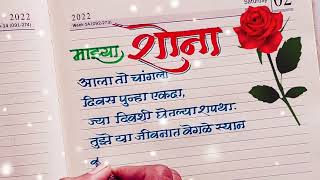 2022
2022
Saturday
02
माझ्या शोना
आला तो चांगला
दिवस पुन्हा एकदा,
ज्या दिवशी घेतल्या शपथा.
तुझे या जीवनात वेगळे स्थान